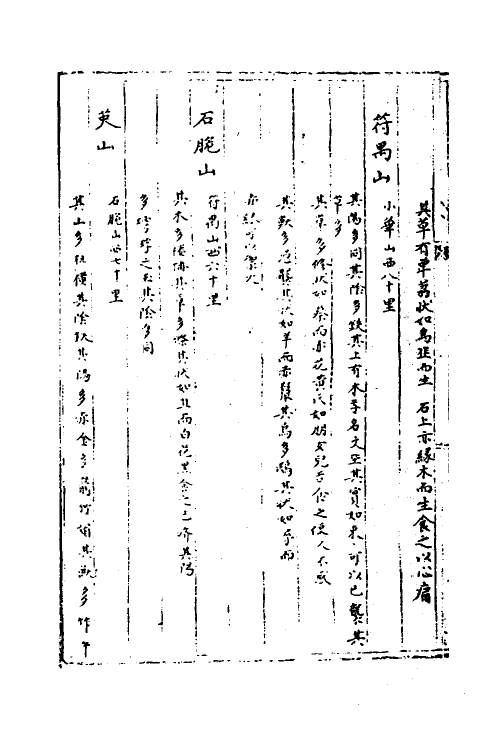 其草有萆荔狀如烏韭而生石上亦緣木而生食之以心痛
符禺山
小華山西八十里
其陽多同其陰多鉄其上有木李名文莖其實如枣可以已聾其
草多
其草多條狀如葵而赤花黄实如朋女兒舌食之使人不惑
其獸多葱聾其状如羊而赤鬣其鳥多鴖其状如翠而
赤緣可以禦火
石脆山
符禺山西六十里
其木多棕楠其草多條其状如韭而白花黑食之已疥其陽
多㻬琈之玉其陰多同
英山
石脆山西七十里
其山多杻橿其陰鉄其陽多赤金多箭竹䉋其獸多㸲牛